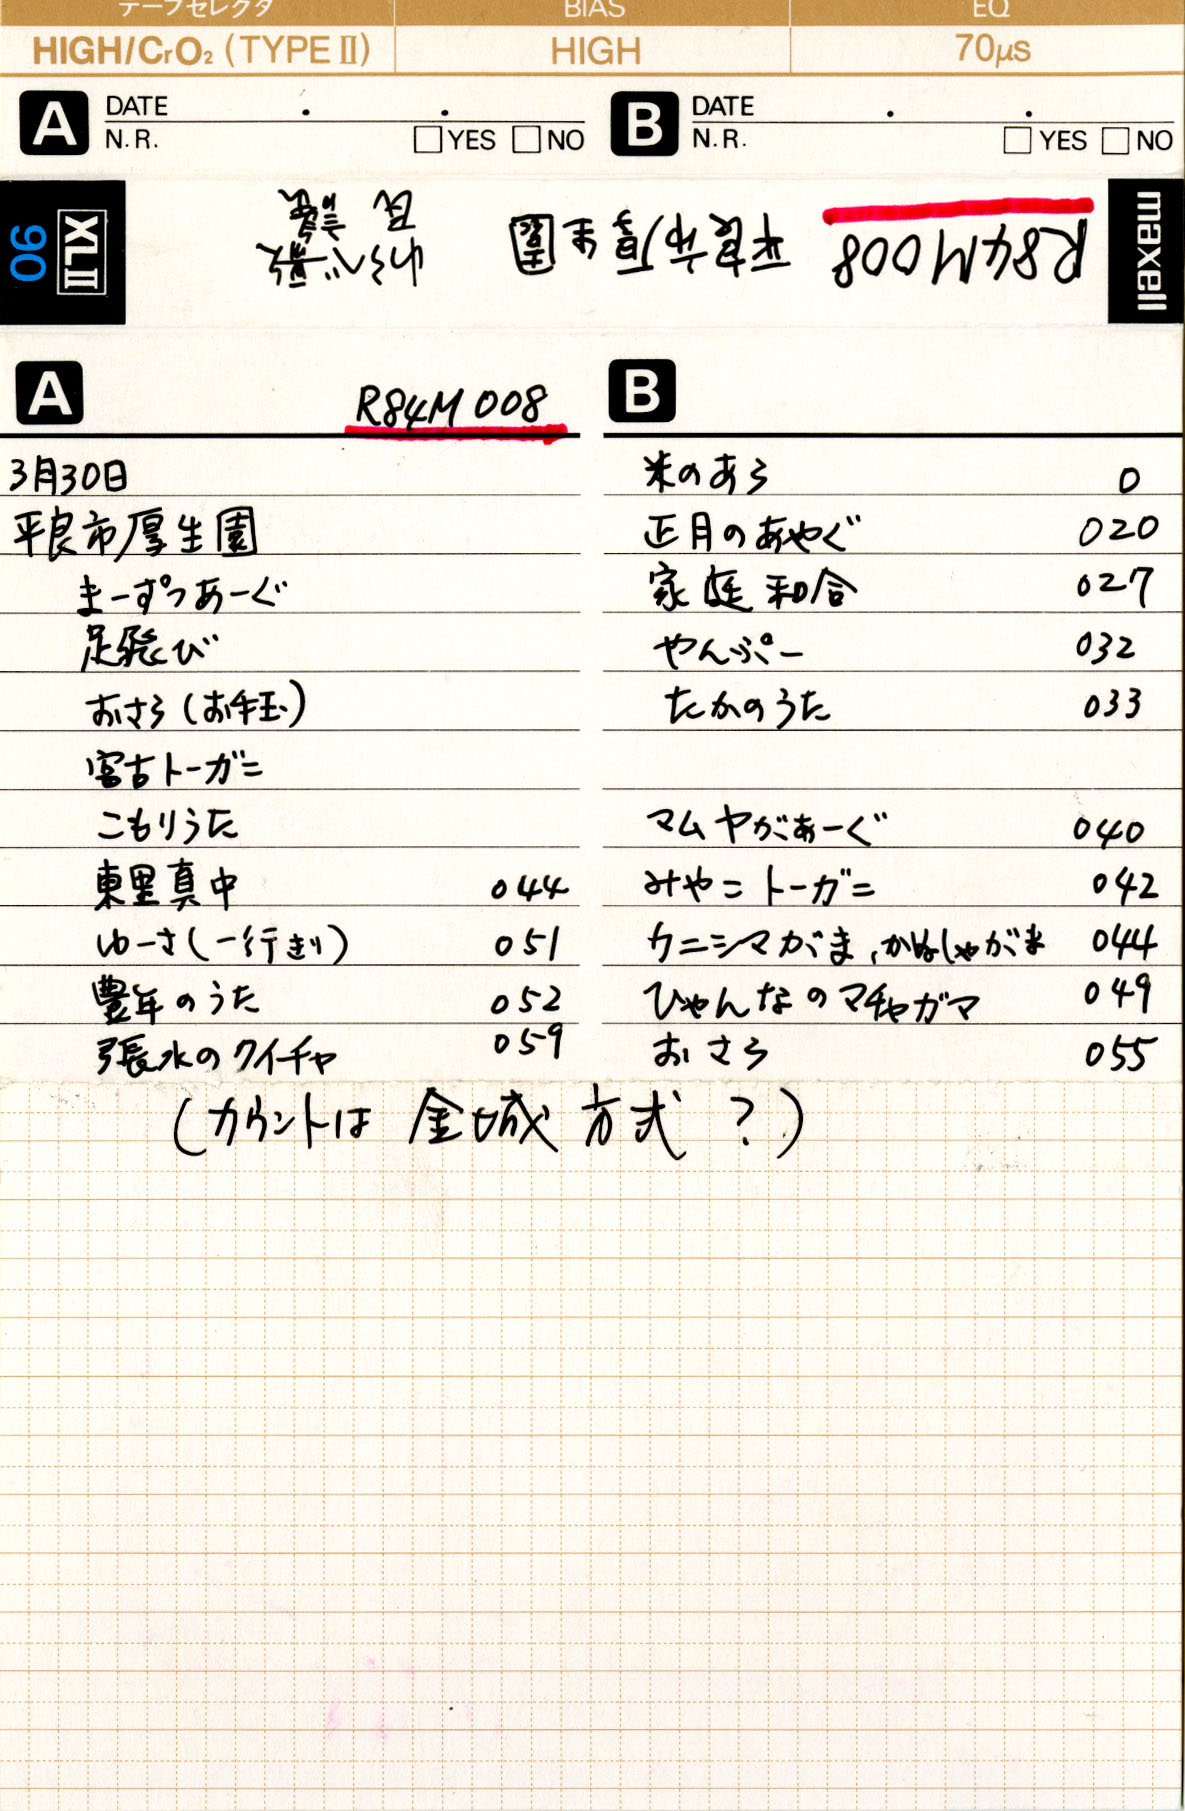 テープセレクタ BIAS EQ
HIGH/CrO₂ (TYPE II) HIGH 70μs
A DATE . . B DATE . .
N.R. □YES □NO N.R. □YES □NO
maxell R84M008 平良市厚生園 民謡 わらべ歌 XLII 90
A R84M008 B
3月30日
平良市厚生園
まーすつあーぐ
足飛び
おさら(お手玉)
宮古トーガニ
こもりうた
東里真中 044
ゆーさ(一行きり) 051
豊年のうた 052
張水のクイチャ 059
米のあら 0
正月のあやぐ 020
家庭和合 027
やんぷー 032
たかのうた 033
マムヤがあーぐ 040
みやこトーガニ 042
ウニシマがま、かぬしゃがま 044
ひゃんなのマチャガマ 049
おさら 055
(カウントは 金城方式?)